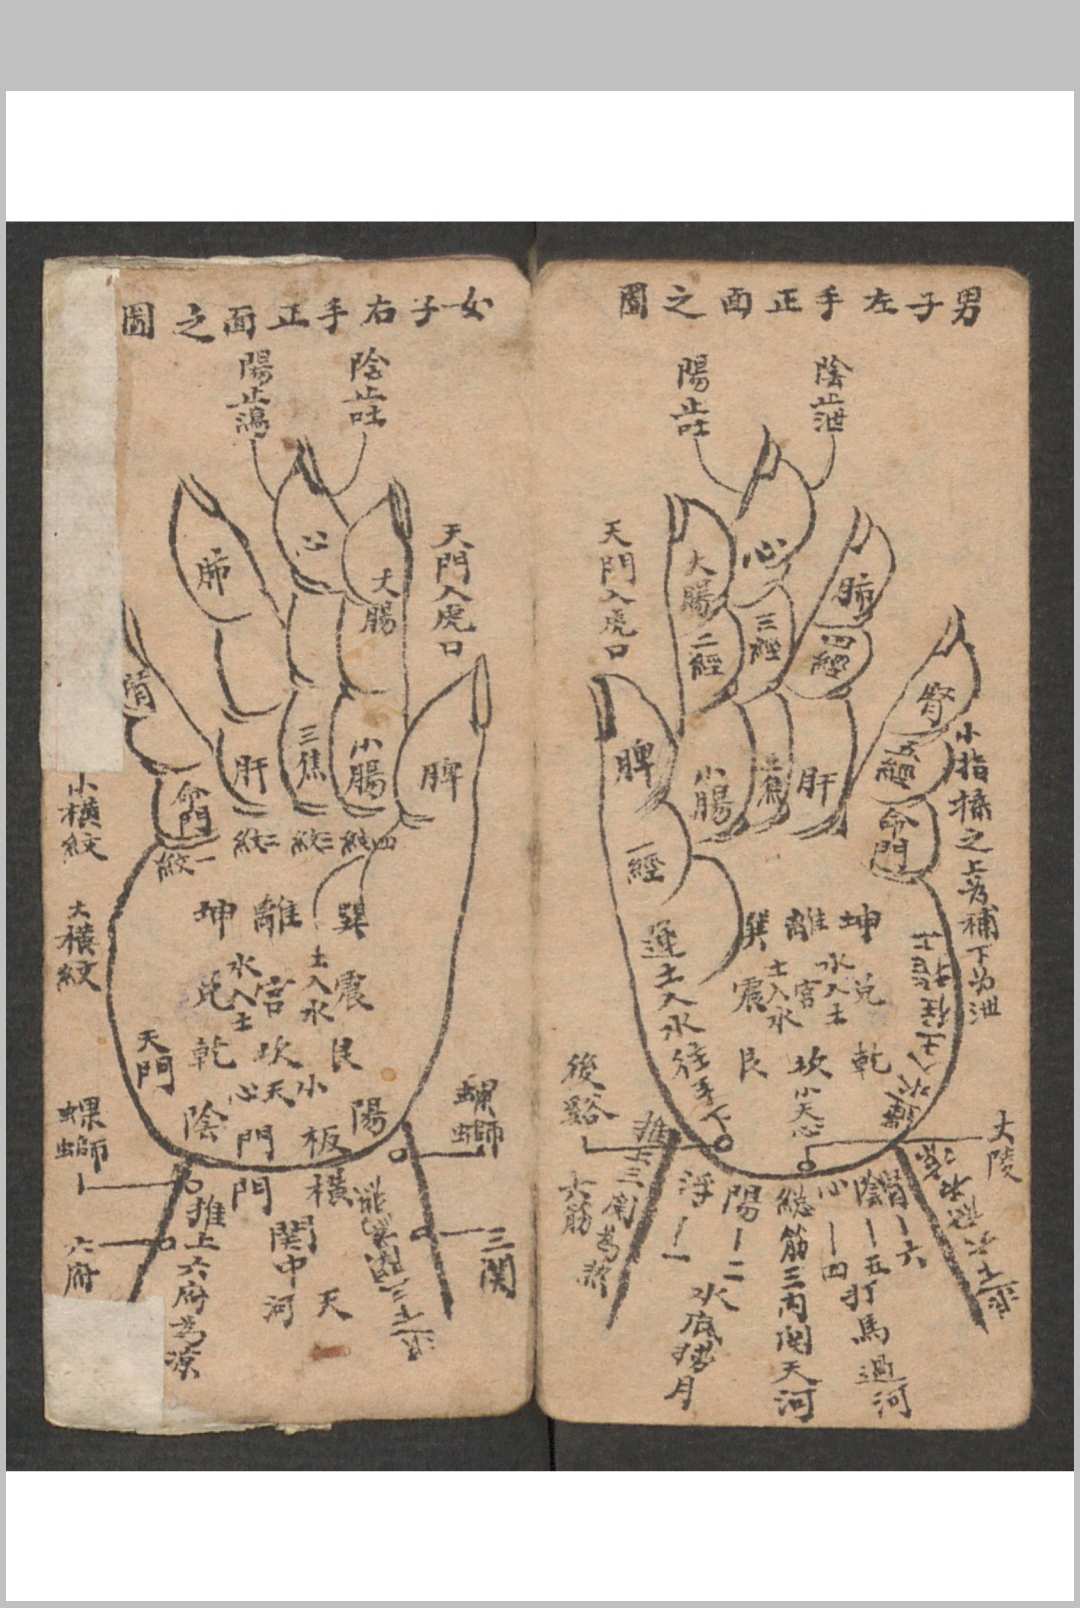 男子左手正面之圖
陰止泄
陽止吐
天門入虎口
大腸
二經
心
三經
肺
四經
腎
五經
脾
一經
小腸
三焦
肝
命門
小指搖之上為補下為泄
運土入水往手下
巽離坤
土入水
水入土
震宮兌
艮坎乾
小天心
後谿
六筋
大陵
浮一一
陽一二
總筋三內関天河
心一四
陰一五
一六
打馬過河
水底撈月
女子右手正面之圖
陰止吐
陽止瀉
天門入虎口
大腸
心
肺
脾
小腸
三焦
肝
命門
紋一
紋二
紋三
紋四
小橫紋
大橫紋
巽離坤
土入水
水入土
震宮兌
艮坎乾
小天心
天門
陽
陰
板門
橫門
螺螄
螺螄
三関
六府
推上六府為涼
関中
天河